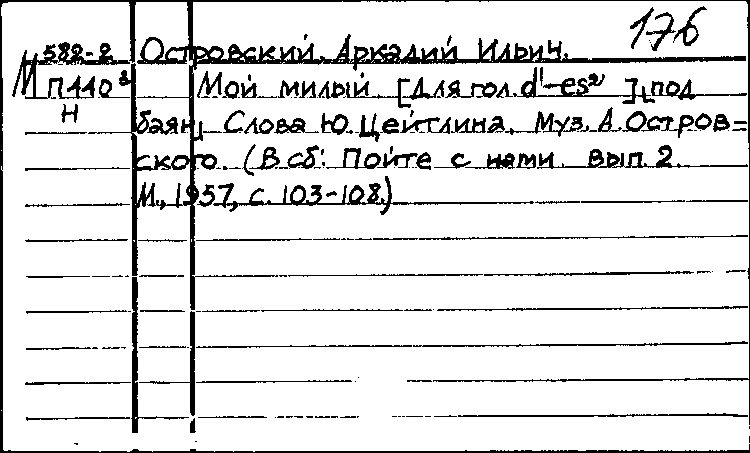 176
М 582-2 Островский, Аркадий Ильич.
П440³ Мой милый. [Для гол. d¹-es² ], [под
Н
баян] Слова Ю. Цейтлина. Муз. А. Остров=
ского. (В сб: Пойте с нами. Вып. 2.
М., 1957, с. 103-108.)